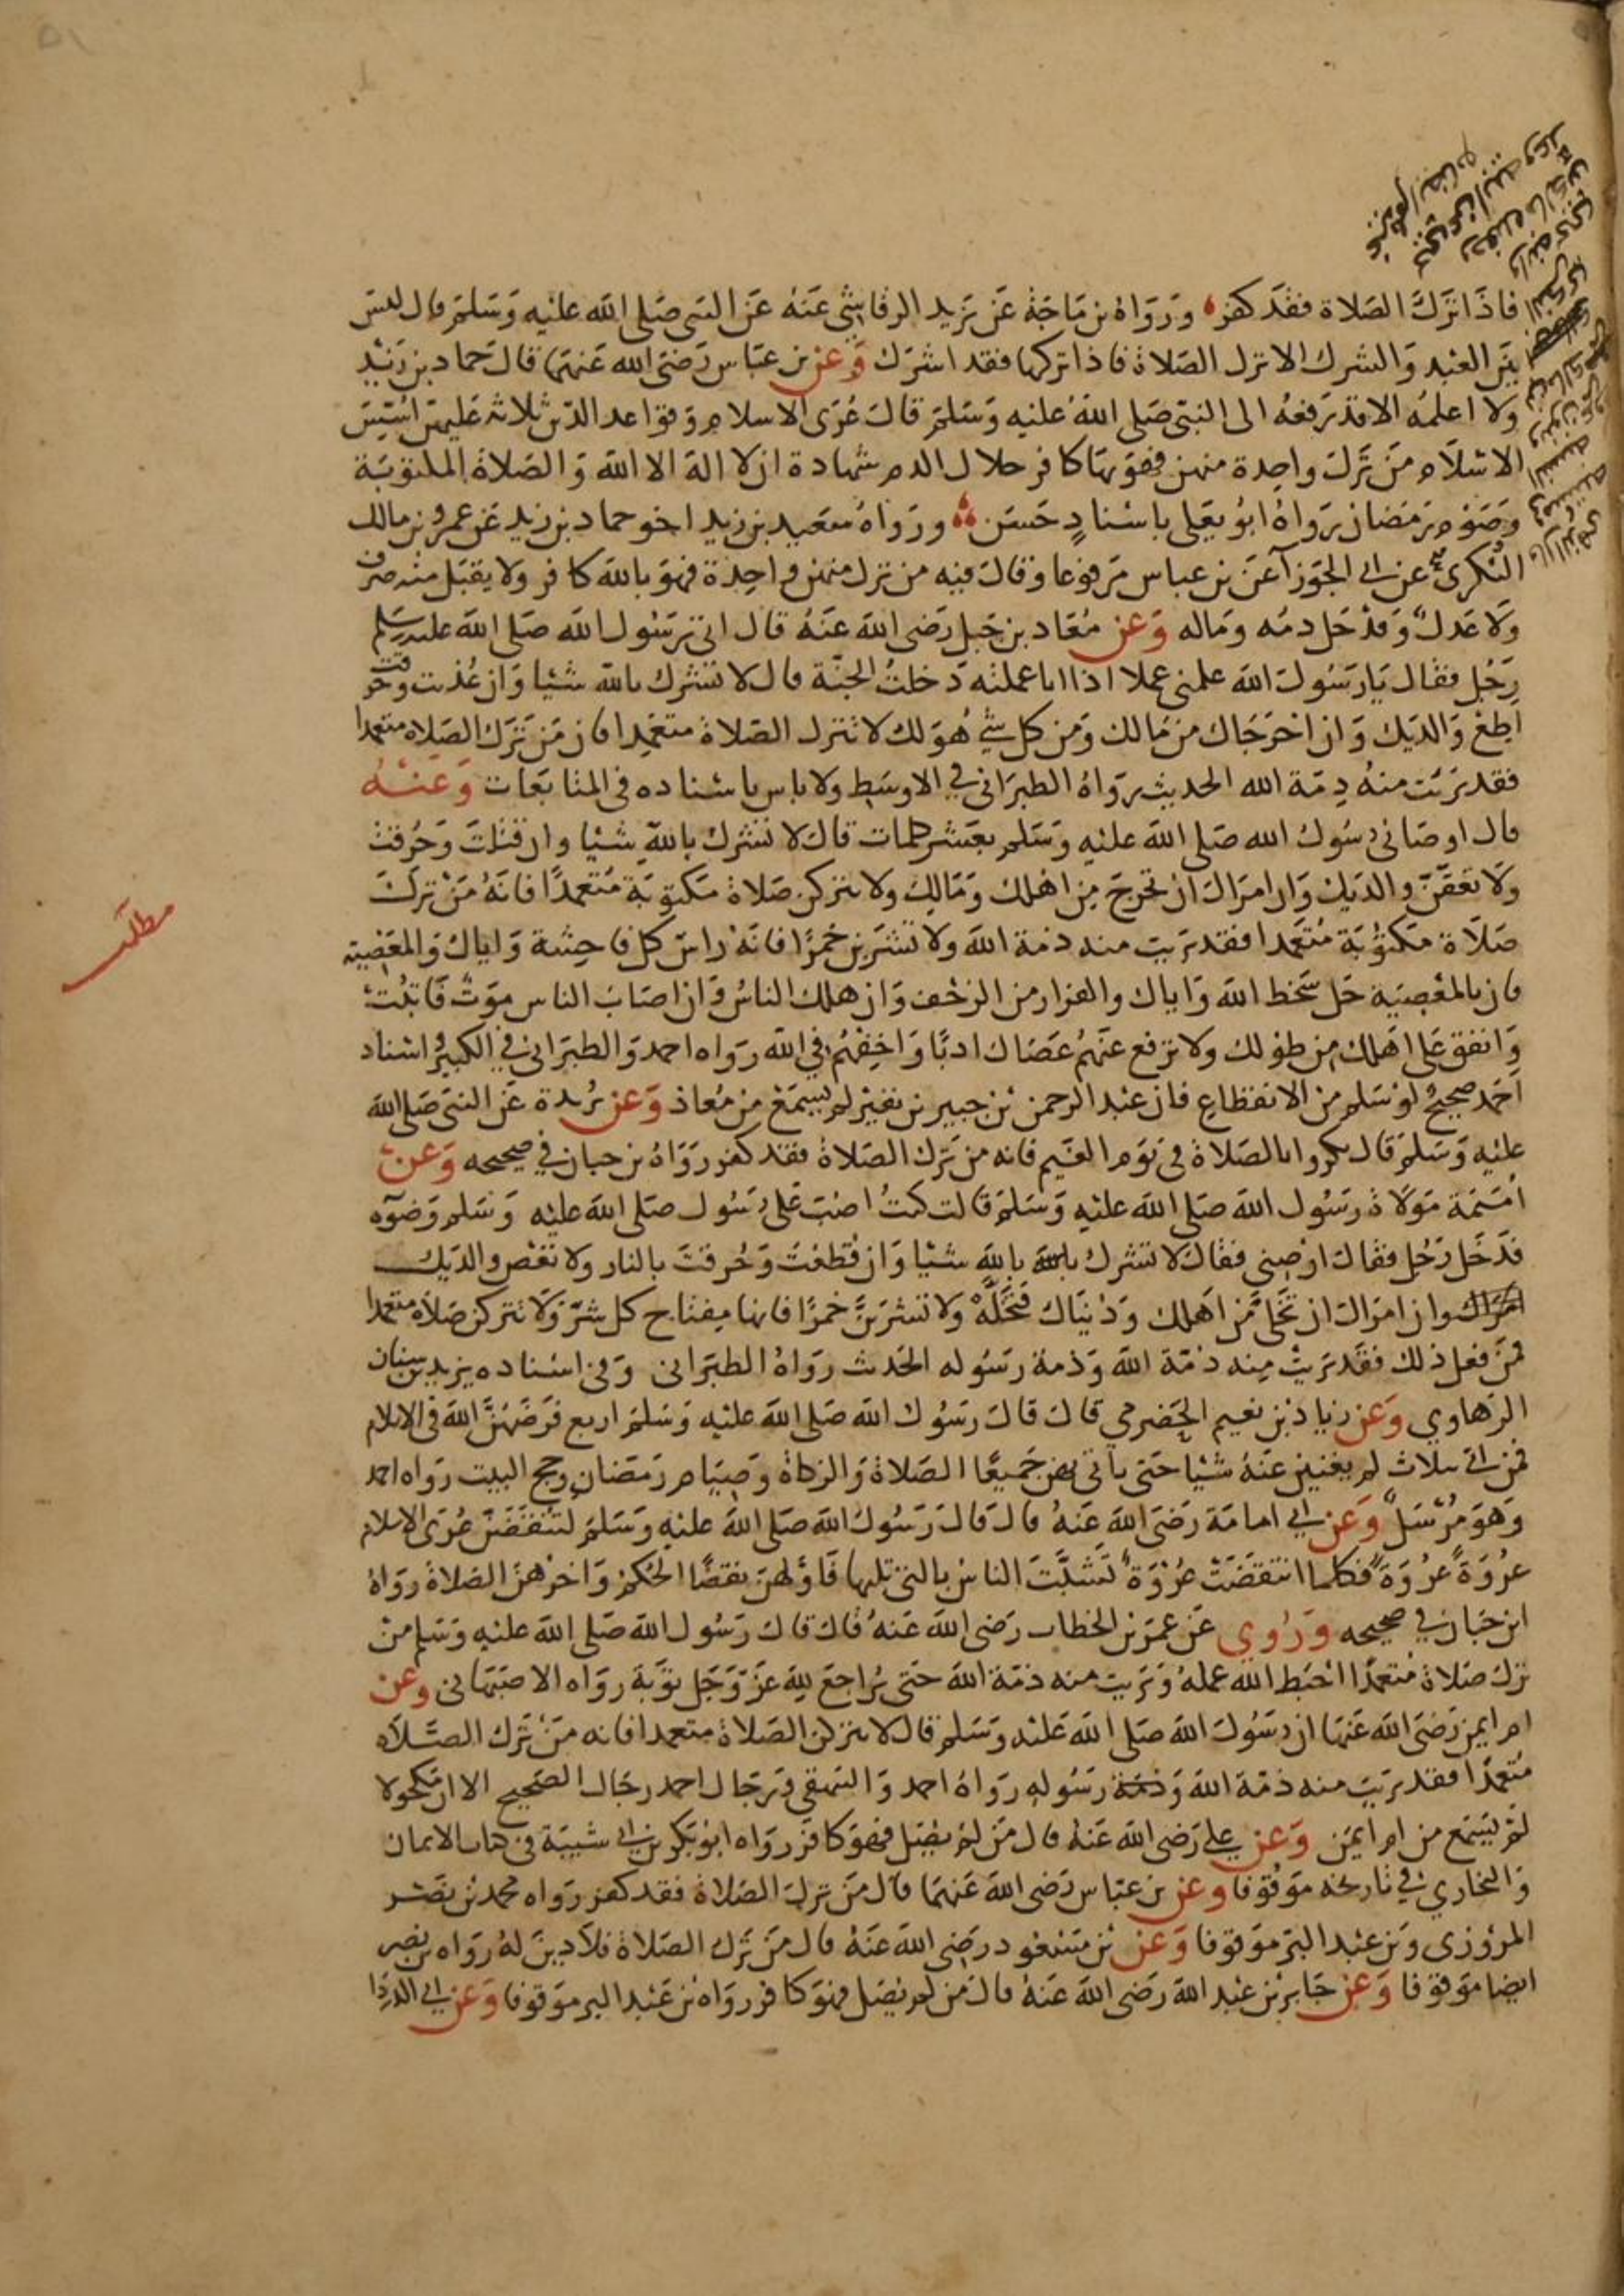 ٥١
فاذا ترك الصلاة فقد كفر ورواه بن ماجة عن يزيد الرقاشي عنه عن النبي صلى الله عليه وسلم قال ليس
بين العبد والشرك الا ترك الصلاة فاذا تركها فقد اشرك وعن بن عباس رضى الله عنهما قال حماد بن زيد
ولا اعلمه الا قد رفعه الى النبي صلى الله عليه وسلم قال عرى الاسلام وقواعد الدين ثلاثه عليهن اسس
الاسلام من ترك واحدة منهن فهو بها كافر حلال الدم شهادة ان لا اله الا الله والصلاة المكتوبة
وصوم رمضان رواه ابو يعلى باسناد حسن ورواه سعيد بن زيد اخو حماد بن زيد عن عمرو بن مالك
النكرى عن ابي الجوزآ عن بن عباس مرفوعا وقال فيه من ترك منهن واحدة فهو بالله كافر ولا يقبل منه صرف
ولا عدل وقد حل دمه وماله وعن معاد بن جبل رضى الله عنه قال اتى رسول الله صلى الله عليه وسلم
رجل فقال يا رسول الله علمنى عملا اذا انا عملته دخلت الجنة قال لا تشرك بالله شيا وان عذبت وحرقت
اطع والديك وان اخرجاك من مالك ومن كل شي هو لك لا تترك الصلاة متعمدا فان من ترك الصلاه متعمدا
فقد بريت منه دمة الله الحديث رواه الطبراني في الاوسط ولا باس باسناده في المتابعات وعنه
قال اوصانى رسول الله صلى الله عليه وسلم بعشر كلمات قال لا تشرك بالله شيا وان قتلت وحرقت
ولا تعقن والديك وان امراك ان تخرج من اهلك ومالك ولا تتركن صلاة مكتوبة متعمدا فانه من ترك
صلاة مكتوبة متعمدا فقد بريت منه ذمة الله ولا تشربن خمرا فانه راس كل فاحشة واياك والمعصية
فان بالمعصية حل سخط الله واياك والفرار من الزحف وان هلك الناس وان اصاب الناس موت فاثبت
وانفق على اهلك من طولك ولا ترفع عنهم عصاك ادبا واخفهم في الله رواه احمد والطبراني في الكبير واسناد
احمد صحيح لو سلم من الانقطاع فان عبد الرحمن بن جبير بن نفير لم يسمع من معاذ وعن بريدة عن النبي صلى الله
عليه وسلم قال بكروا بالصلاة في يوم الغيم فانه من ترك الصلاة فقد كفر رواه بن حبان في صحيحه وعن
اميمة مولاة رسول الله صلى الله عليه وسلم قالت كنت اصب على رسول صلى الله عليه وسلم وضوه
فدخل رجل فقال اوصني فقال لا تشرك بالله شيا وان قطعت وحرقت بالنار ولا تعص والديك
وان امراك ان تخلى من اهلك ودنياك فتخله ولا تشربن خمرا فانها مفتاح كل شر ولا تتركن صلاه متعمدا
فمن فعل ذلك فقد بريت منه ذمة الله وذمة رسوله الحديث رواه الطبراني وفي اسناده يزيد بن سنان
الرهاوي وعن زياد بن نعيم الحضرمي قال قال رسول الله صلى الله عليه وسلم اربع فرضهن الله في الاسلام
فمن اتى بثلاث لم يغنين عنه شيا حتى ياتي بهن جميعا الصلاة والزكاة وصيام رمضان وحج البيت رواه احمد
وهو مرسل وعن ابي امامة رضى الله عنه قال قال رسول الله صلى الله عليه وسلم لتنتقضن عرى الاسلام
عروة عروة فكلما انتقضت عروة تشبث الناس بالتى تليها فاولهن نقضا الحكم واخرهن الصلاة رواه
ابن حبان في صحيحه وروي عن عمر بن الخطاب رضى الله عنه قال قال رسول الله صلى الله عليه وسلم من
ترك صلاة متعمدا احبط الله عمله وبريت منه ذمة الله حتى يراجع لله عز وجل توبة رواه الاصبهانى وعن
ام ايمن رضى الله عنها ان رسول الله صلى الله عليه وسلم قال لا تتركن الصلاة متعمدا فانه من ترك الصلاه
متعمدا فقد بريت منه ذمة الله وذمة رسوله رواه احمد والبيهقي ورجال احمد رجال الصحيح الا ان مكحولا
لم يسمع من ام ايمن وعن علي رضى الله عنه قال من لم يصل فهو كافر رواه ابو بكر بن ابي شيبة في كتاب الايمان
والبخاري في تاريخه موقوفا وعن بن عباس رضى الله عنهما قال من ترك الصلاة فقد كفر رواه محمد بن نصر
المروزى وبن عبد البر موقوفا وعن بن مسعود رضى الله عنه قال من ترك الصلاة فلا دين له رواه بن نصر
ايضا موقوفا وعن جابر بن عبد الله رضى الله عنه قال من لم يصل فهو كافر رواه بن عبد البر موقوفا وعن ابي الدردا
مطلب